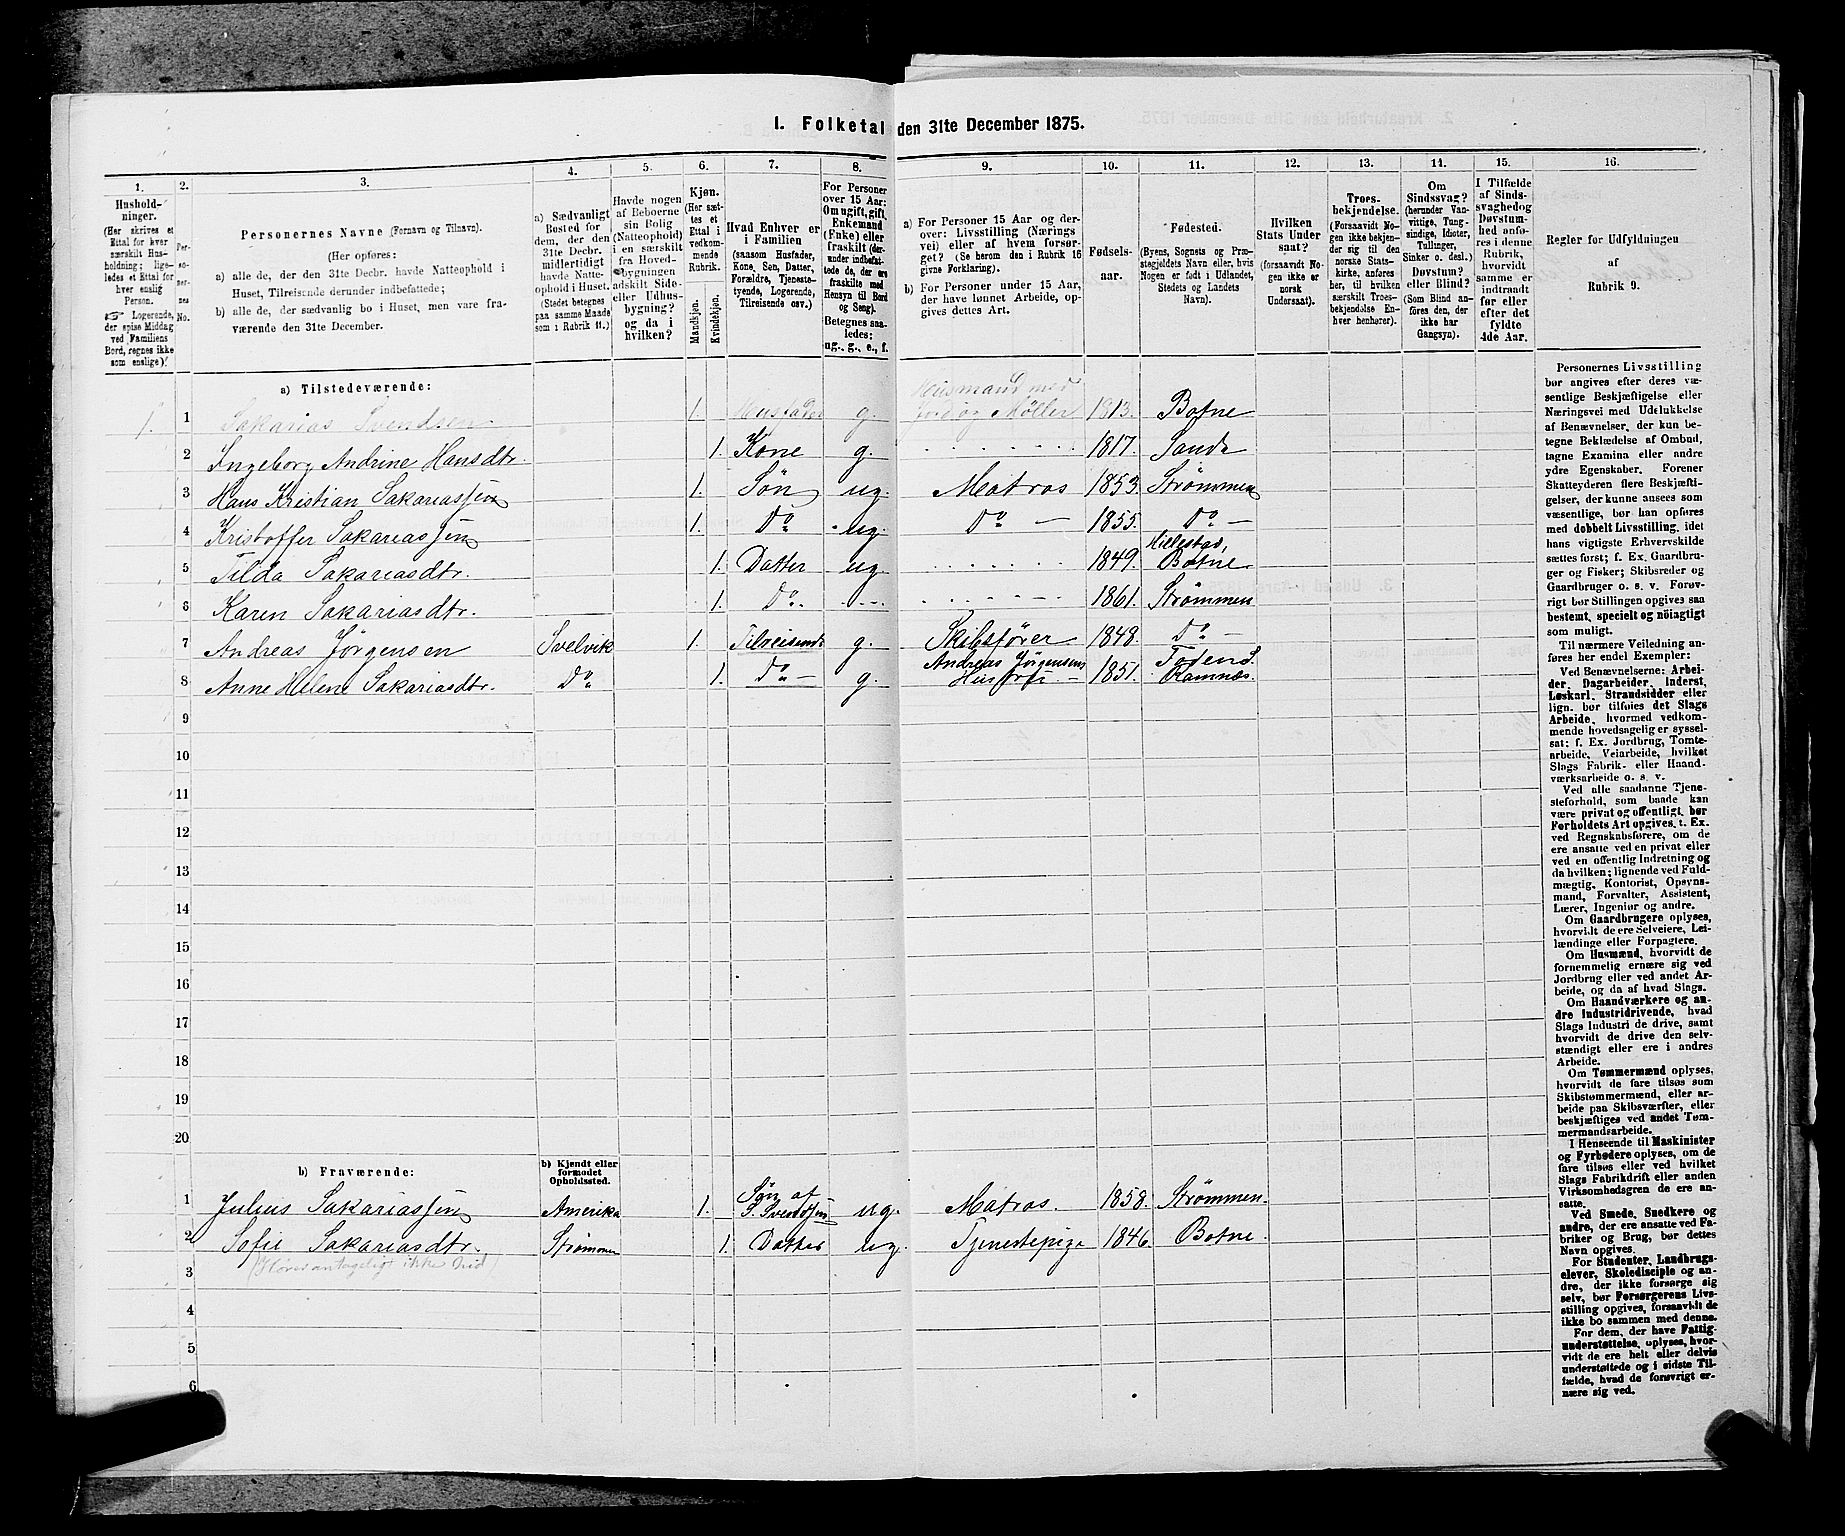 I. Folketal den 31te December 1875.
1.
Hushold-
ninger.
(Her skrives et
Ettal for hver
særskilt Hus-
holdning; lige-
ledes et Ettal for
hver enslig
Person.
Logerende,
der spise Middag
ved Familiens
Bord, regnes ikke
som enslige).
2.
Per-
so-
ner-
nes
No.
3.
Personernes Navne (Fornavn og Tilnavn).
(Her opføres:
a) alle de, der den 31te Decbr. havde Natteophold i
Huset, Tilreisende derunder indbefattede;
b) alle de, der sædvanlig bo i Huset, men vare fra-
værende den 31te December.
4.
a) Sædvanligt
Bosted for
dem, der den
31te Decbr.
midlertidigt
havde Natte-
ophold i Huset.
(Stedet betegnes
paa samme Maade
som i Rubrik 11.)
5.
Havde nogen
af Beboerne
sin Bolig
(Natteophold)
i en særskilt
fra Hoved-
bygningen
adskilt Side-
eller Udhus-
bygning?
og da i
hvilken?
6.
Kjøn.
(Her sæt-
tes et
Ettal i
vedkom-
mende
Rubrik.
Mandkjøn.
Kvindekjøn.
7.
Hvad Enhver er
i Familien
(saasom Husfader,
Kone, Søn, Datter,
Forældre, Tjeneste-
tyende, Logerende,
Tilreisende osv.)
8.
For Personer
over 15 Aar:
Om ugift, gift,
Enkemand
(Enke) eller
fraskilt (der-
under indbefat-
tede de, der ere
fraskilte med
Hensyn til Bord
og Seng).
Betegnes saa-
ledes:
ug., g., e., f.
9.
a) For Personer 15 Aar og der-
over: Livsstilling (Nærings
vei) eller af hvem forsør-
get? (Se berom den i Rubrik 16
givne Forklaring).
b) For Personer under 15 Aar,
der have lønnet Arbeide, op-
gives dettes Art.
10.
Fødsels-
aar.
11.
Fødested.
(Byens, Sognets og Præ-
stegjeldets Navn eller, hvis
Nogen er født i Udlandet,
Stedets og Landets
Navn).
12.
Hvilken
Stats Under
saat?
(forsaavidt No-
gen ikke er
norsk
Undersaat).
13.
Troes-
bekjendelse.
(Forsaavidt No-
gen ikke bekjen-
der sig til den
norske Stats-
kirke, anføres
her, til hvilken
særskilt Troes-
bekjendelse En-
hver henhører).
14.
Om
Sindssvag?
(herunder Van-
vittige, Tung-
sindige, Idioter,
Tullinger,
Sinker o. desl.)
Døvstum?
eller Blind?
(Som Blind an-
føres den, der
ikke har
Gangsyn).
15.
I Tilfælde
af Sinds-
svaghed og
Døvstum-
hed anfø-
res i denne
Rubrik,
hvorvidt
samme er
indtraadt
før eller
efter det
fyldte
4de Aar.
16.
Regler for Udfyldningen
af
Rubrik 9.
a) Tilstedeværende:
1. 1 Sakarias Svendsen 1. Husfader g. Husmand med Jord og Møller 1813. Botne
2 Ingeborg Andrine Hansdtr. 1. Kone g. 1817. Sande
3 Hans Kristian Sakariassen 1. Søn ug. Matros 1853. Strømmen
4 Kristoffer Sakariassen 1. Do ug. Do — 1855. Do —
5 Tilda Sakariasdtr. 1. Datter ug. 1849. Hillestad, Botne
6 Karen Sakariasdtr. 1. Do. 1861. Strømmen
7 Andreas Jørgensen Svelvik 1. Tilreisende g. Skibsfører 1848. Do —
8 Anne Helene Sakariasdtr. Do 1. Do — g. Andreas Jørgensens Hustru — 1851. Ramnæs.
9
10
11
12
13
14
15
16
17
18
19
20
b) Fraværende:
b) Kjendt eller
formodet
Opholdssted.
1 Julius Sakariassen Amerika 1. Søn af S. Svendsen ug. Matros. 1858. Strømmen.
2 Sofie Sakariasdtr. Strømmen 1. Datter ug. Tjenestepige 1846. Botne.
3
4
5
6
Personernes Livsstilling
bør angives efter deres væ-
sentlige Beskjæftigelse eller
Næringsvei med Udelukkelse
af Benævnelser, der kun be-
tegne Beklædelse af Ombud,
tagne Examina eller andre
ydre Egenskaber. Forener
Skatteyderen flere Beskjæfti-
gelser, der kunne ansees som
væsentlige, bør han opføres
med dobbelt Livsstilling, idet
hans vigtigste Erhvervskilde
sættes først; f. Ex. Gaardbru-
ger og Fisker; Skibsreder og
Gaardbruger o. s. v. Forøv-
rigt bør Stillingen opgives saa
bestemt, specielt og nöiagtigt
som muligt.
Til nærmere Veiledning an-
føres her endel Exempler:
Ved Benævnelserne: Arbei-
der, Dagarbeider, Inderst,
Løskarl, Strandsidder eller
lign. bør tilføies det Slags
Arbeide, hvormed vedkom-
mende hovedsagelig er syssel-
sat; f. Ex. Jordbrug, Tomte-
arbeide, Veiarbeide, hvilket
Slags Fabrik- eller Haand-
værksarbeide o. s. v.
Ved alle saadanne Tjene-
steforhold, som baade kan
være privat og offentligt, bør
Forholdets Art opgives, t. Ex.
ved Regnskabsførere, om de
ere ansatte ved en privat eller
ved en offentlig Indretning og
da hvilken; lignende ved Fuld-
mægtig, Kontorist, Opsyns-
mand, Forvalter, Assistent,
Lærer, Ingeniør og andre.
Om Gaardbrugere oplyses,
hvorvidt de ere Selveiere, Lei-
lændinge eller Forpagtere.
Om Husmænd, hvorvidt de
fornemmelig ernære sig ved
Jordbrug eller ved andet Ar-
beide, og da af hvad Slags.
Om Haandværkere og an-
dre Industridrivende, hvad
Slags Industri de drive, samt
hvorvidt de drive den selv-
stændigt eller ere i andres
Arbeide.
Om Tømmermænd oplyses,
hvorvidt de fare tilsøs som
Skibstømmermænd, eller ar-
beide paa Skibsværfter, eller
beskjæftiges ved andet Tøm-
mermandsarbeide.
I Henseende til Maskinister
og Fyrbødere oplyses, om de
fare tilsøs eller ved hvilket
Slags Fabrikdrift eller anden
Virksomhedsgren de ere an-
satte.
Ved Smede, Snedkere og
andre, der ere ansatte ved Fa-
briker og Brug, bør dettes
Navn opgives.
For Studenter, Landbrugs-
elever, Skoledisciple og an-
dre, der ikke forsørge sig
selv, bør Forsørgerens Livs-
stilling opgives, forsaavidt de
ikke bo sammen med denne.
For dem, der have Fattig-
understøttelse, oplyses, hvor-
vidt de ere helt eller delvis
understøttede og i sidste Til-
fælde, hvad de forøvrigt er-
nære sig ved.